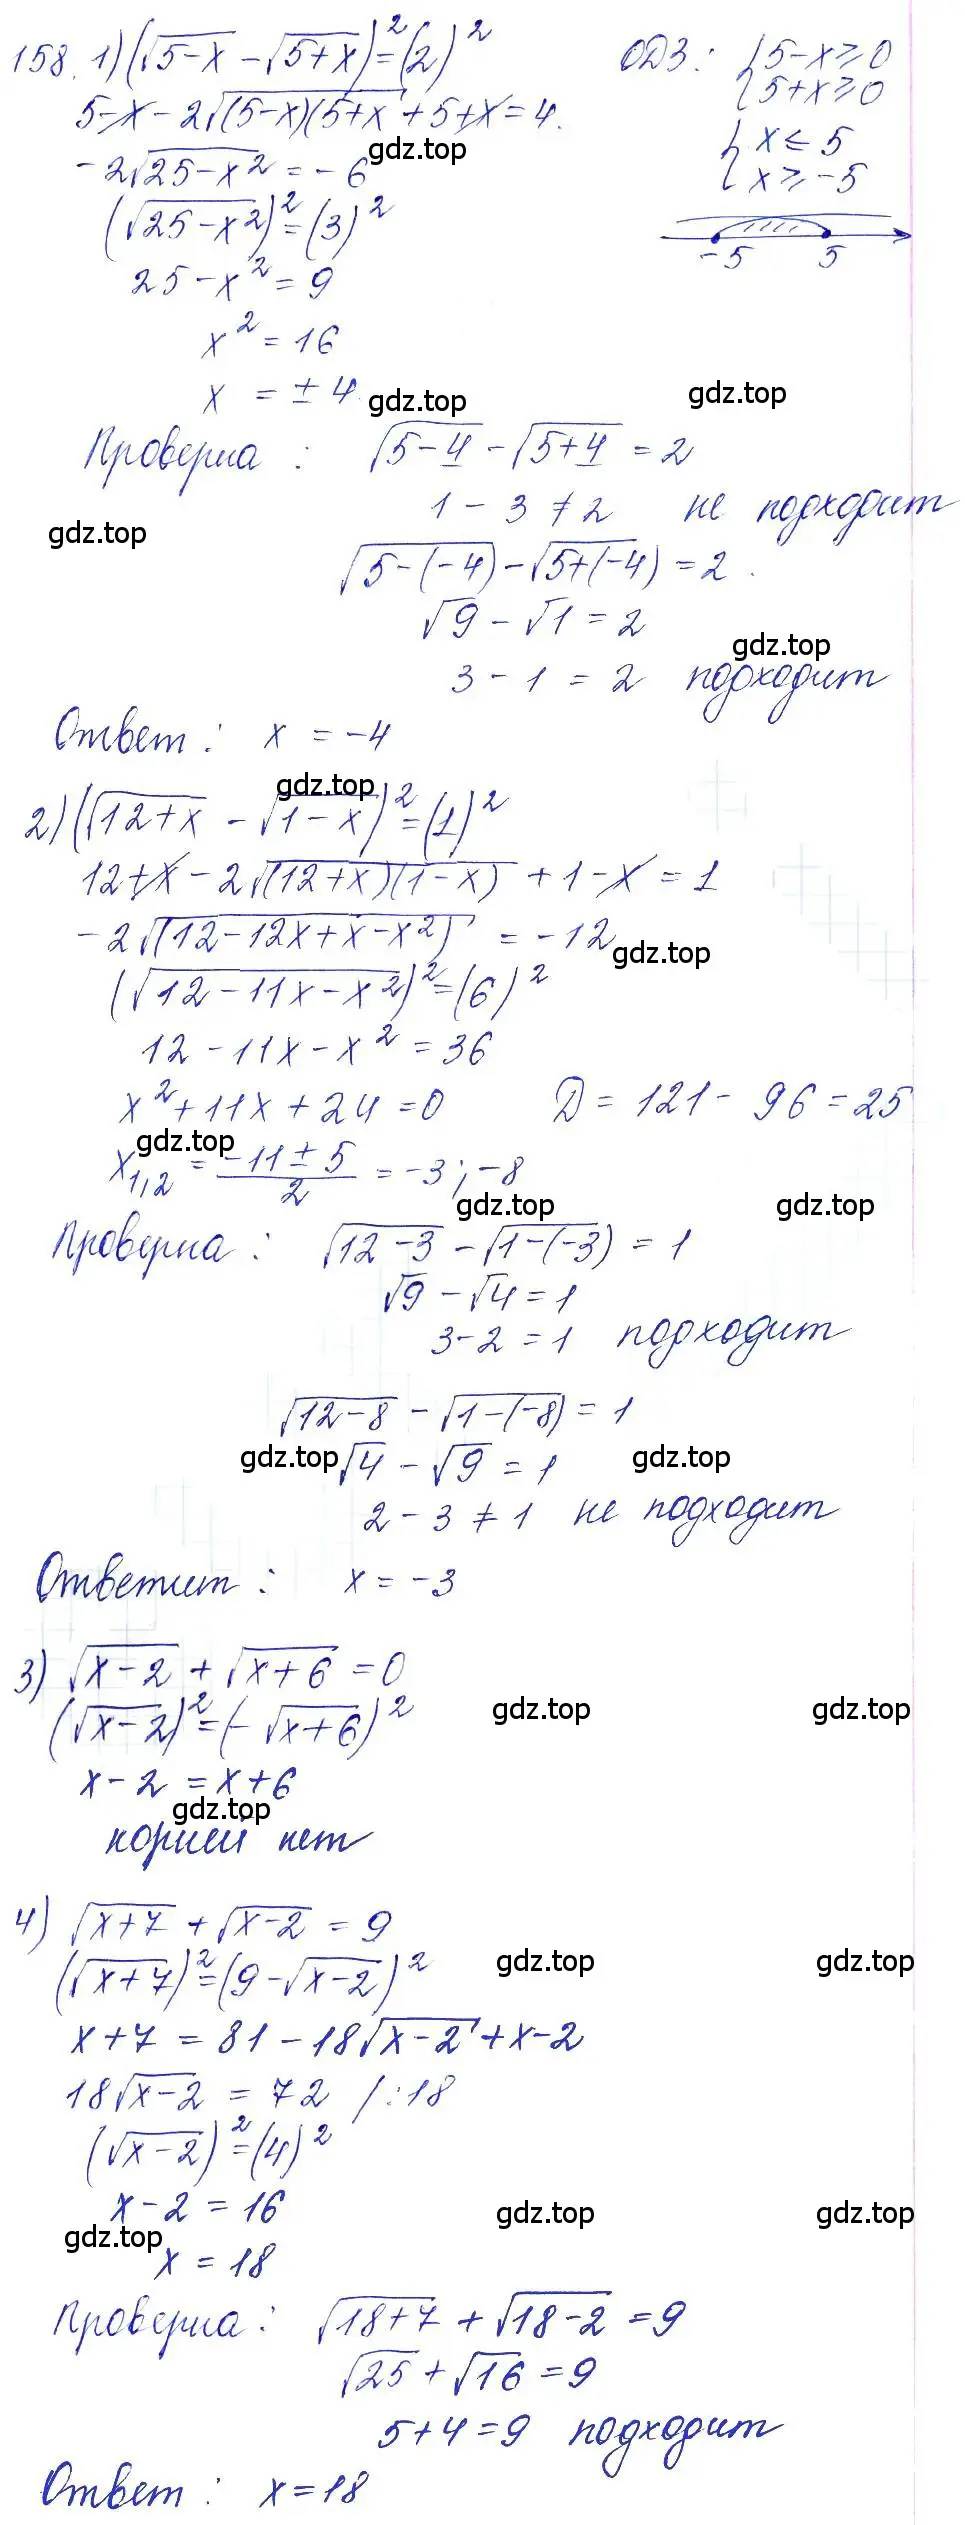 158. 1) (√5-x - √5+x)² = (2)² ОДЗ: { 5-x ≥ 0
{ 5+x ≥ 0
5-x - 2√(5-x)(5+x) + 5+x = 4.
gdz.top
{ x ≤ 5
{ x ≥ -5
-2√25-x² = -6
(√25-x²)² = (3)²
-5 5
25-x² = 9
x² = 16
x = ±4
gdz.top gdz.top
Проверка: √5-4 - √5+4 = 2
1 - 3 ≠ 2 не подходит
gdz.top
√5-(-4) - √5+(-4) = 2.
√9 - √1 = 2
gdz.top
3 - 1 = 2 подходит
Ответ: x = -4
gdz.top
2) (√12+x - √1-x)² = (1)²
12+x - 2√(12+x)(1-x) + 1-x = 1
-2√(12-12x+x-x²) = -12
gdz.top
(√12-11x-x²)² = (6)²
12-11x-x² = 36
x²+11x+24 = 0 D = 121 - 96 = 25
gdz.top
x1,2 = -11±5/2 = -3; -8
gdz.top gdz.top
Проверка: √12-3 - √1-(-3) = 1
√9 - √4 = 1
3-2 = 1 подходит
√12-8 - √1-(-8) = 1
gdz.top gdz.top
√4 - √9 = 1
2 - 3 ≠ 1 не подходит
Ответит: x = -3
3) √x-2 + √x+6 = 0
(√x-2)² = (-√x+6)²
gdz.top gdz.top
x-2 = x+6
gdz.top
корней нет
4) √x+7 + √x-2 = 9
(√x+7)² = (9-√x-2)²
gdz.top gdz.top
x+7 = 81 - 18√x-2 + x-2
18√x-2 = 72 /:18
(√x-2)² = (4)²
x-2 = 16
gdz.top gdz.top
gdz.top
x = 18
Проверка: √18+7 + √18-2 = 9
√25 + √16 = 9
5+4 = 9 подходит
Ответ: x = 18